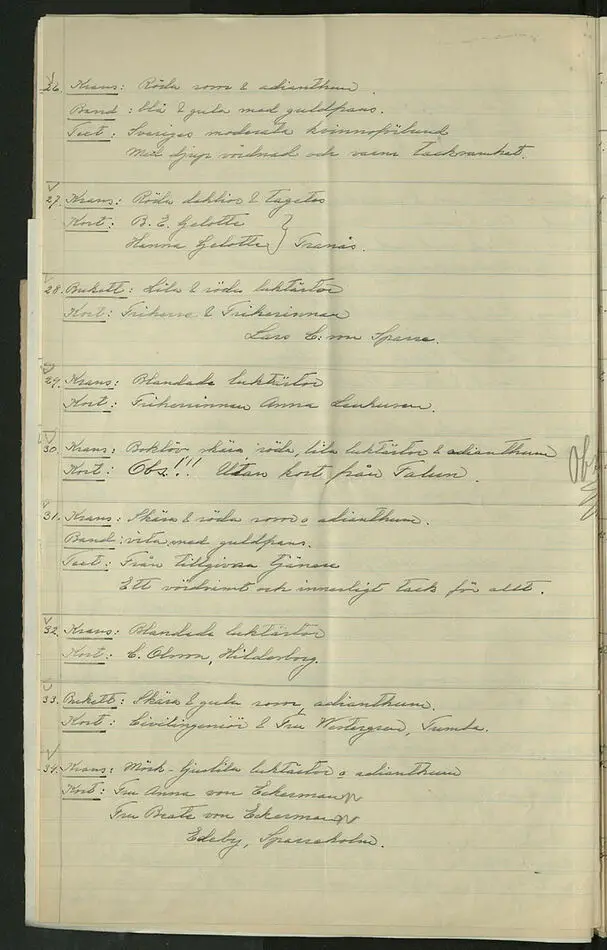 26. Krans: Röda rosor & adianthum.
Band: blå & gula med guldfrans.
Text: Sveriges moderata kvinnoförbund
Med djup vördnad och varm tacksamhet.
27. Krans: Röda & tagetes
Kort: B. E. Gelotte
Hanna Gelotte } Tranås.
28. Bukett: Lila & röda luktärtor
Kort: Friherre & Friherrinnan
Lars E:son Sparre.
29. Krans: Blandade luktärtor
Kort: Friherrinnan Anna
30. Krans: Boklöv skära, röda, lila luktärtor & adianthum
Kort: Obs!!! Utan kort från Falun. Obs
31. Krans: Skära & röda rosor o adianthum.
Band: vita med guldfrans.
Text: Från tillgivna tjänare
Ett vördsamt och innerligt tack för allt.
32. Krans: Blandade luktärtor
Kort: E. Olsson, Hilderborg.
33. Bukett: Skära & gula rosor, adianthum.
Kort: Civilingeniör & Fru Westergren, Trumba.
34. Krans: Mörk- ljuslila luktärtor o adianthum
Kort: Fru Anna von Eckermann
Fru Beate von Eckermann
Edeby, Sparreholm.